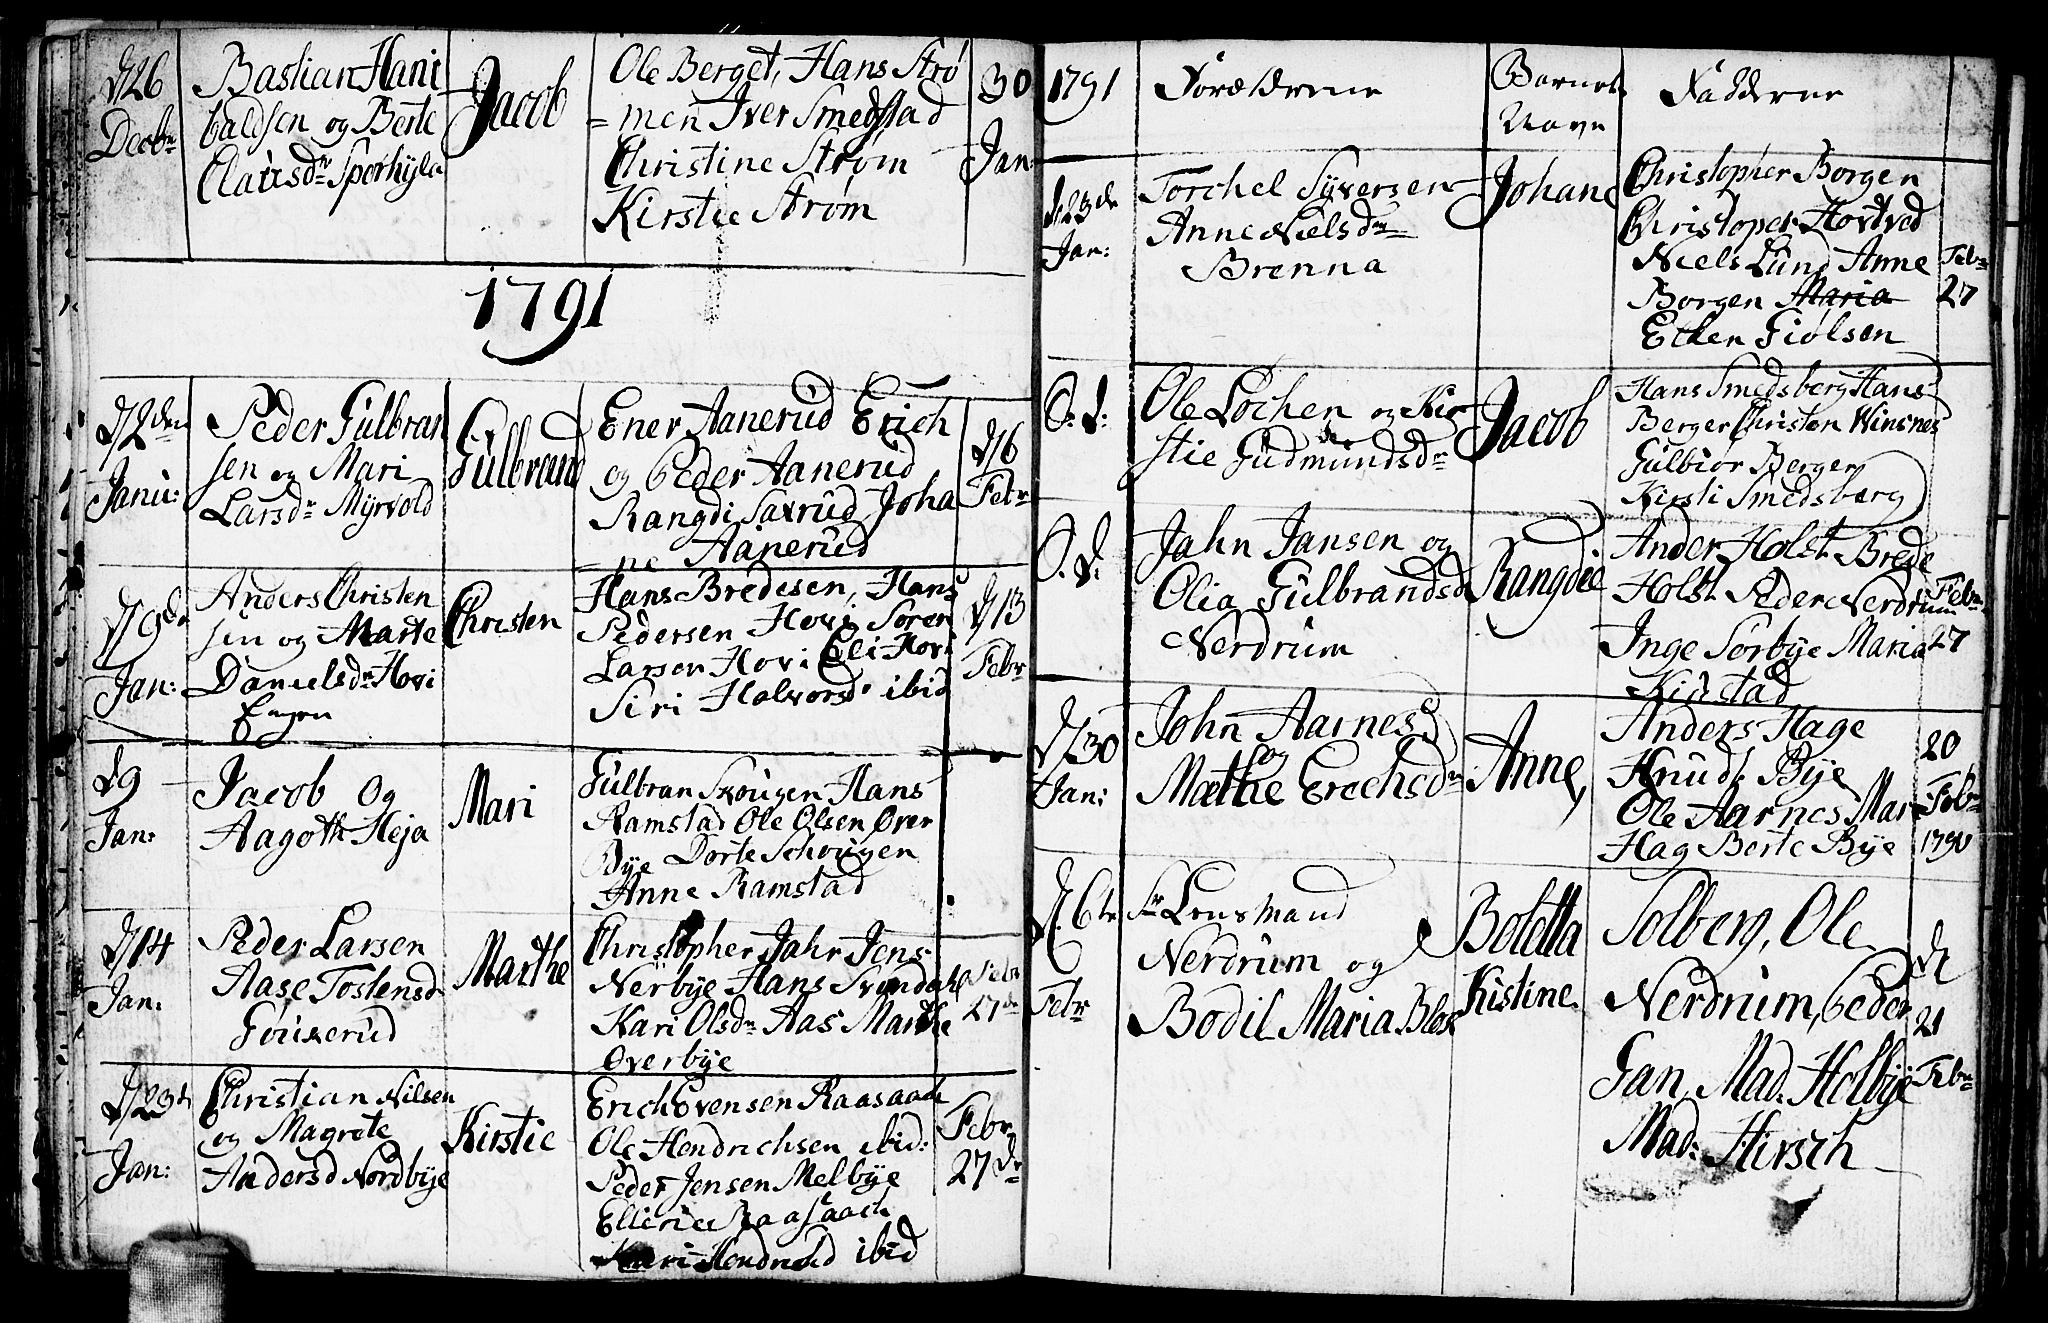 d 26
Decbr
Bastian Hani
baldsen og Berte
Clausdr Sporhyla
Jacob
Ole Berget, Hans Strø
=men Iver Smedstad
Christine Strøm
Kirstie Strøm
30
Jan:
1791
d 2den
Janu:
Peder Gulbran
sen og Mari
Larsdr Myrvold
Gulbrand
Ener Aanerud Erich
og Peder Aanerud
Rangdi Saxrud, Joha
=ne Aanerud
d 6
Febr
d 9de
Jan:
Anders Christen
sen og Marte
Danielsdr Hovi
Engen
Christen
Hans Bredesen, Hans
Pedersen Hovi Søren
Larsen Hovi Eli Hovi
Siri Halvorsd. ibid
d 13
Febr
d 9
Jan:
Jacob Og
Aagoth Heja
Mari
Gulbran Skougen Hans
Ramstad Ole Olsen Over
Bye Dorte Schougen
Anne Ramstad
d 14
Jan:
Peder Larsen
Aase Tostensd
Gouxerud
Marthe
Christopher Jahr Jens
Nerbye Hans Svindahl
Kari Olsdr Aas Marthe
Overbye
Febr
27de
d 23d
Jan:
Christian Nilsen
og Magrete
Andersd Nordbye
Kirstie
Erich Evensen Raasaach
Ole Hendrichsen ibid:
Peder Jensen Melbye
Ellerie Raasaach
Kari Hendrichd ibid
Febr
27de
1791
Forældrene
Barnets
Navn
Fadderne
d. 23de
Jan:
Torchel Syversen
Anne Nielsdr
Brenna
Johane
Christopher Borgen
Christoper Hovtved
Niels Lund Anne
Borgen Maria
Ellen Giølsen
Febr
27
O. d.
Ole Lochen og Kir
stie Gudmundsdr
Jacob
Hans Smedsberg Hans
Berger Christen Winsnes
Gulbiør Berger
Kirsti Smedsberg
O. d.
Jahn Jansen og
Olia Gulbrandsd
Nerdrum
Rangdie
Ander Holst Brede
Holst Peder Nerdrum
Inge Sørbye Maria
Kidstad
Febr
27
d 30
Jan:
John Aarnes
og
Mathe Erechsdr
Anne,
Anders Hage
Knud Bye
Ole Aarnes Mar
Hag Berte Bye
20
Febr
1790
d. 6te
Febr
Sr Lensmand
Nerdrum og
Bodil Maria Blox
Boletta
Kistine.
Solberg, Ole
Nerdrum, Peder
Gan, Mad. Holbye
Mad: Hirsch
d
21
Febr